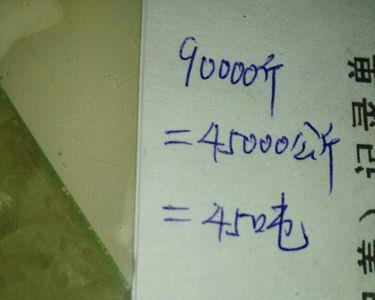 90000斤
=45000公斤
=450吨
记录单
（